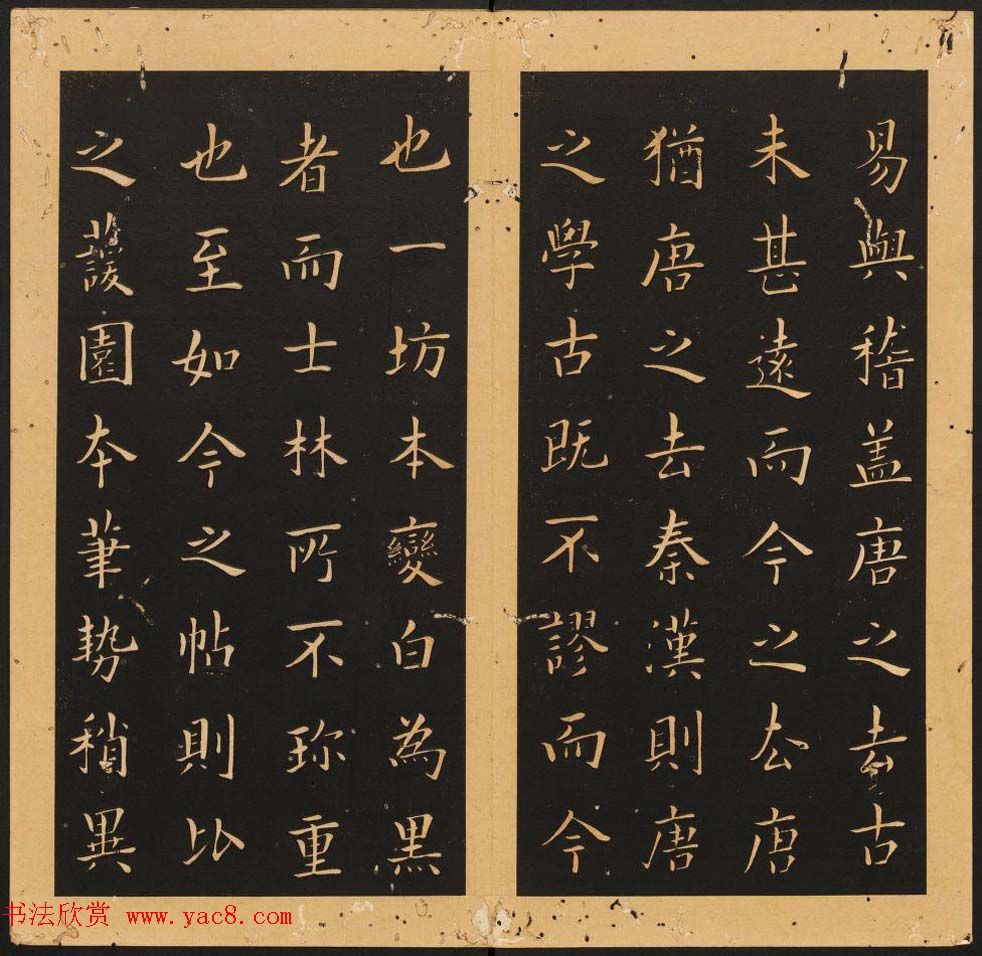 易與稽蓋唐之去古
未甚遠而今之去唐
猶唐之去秦漢則唐
之學古既不謬而今
也一坊本變白為黑
者而士林所不珎重
也至如今之帖則比
之蘐園本筆勢稍異
书法欣赏 www.yac8.com